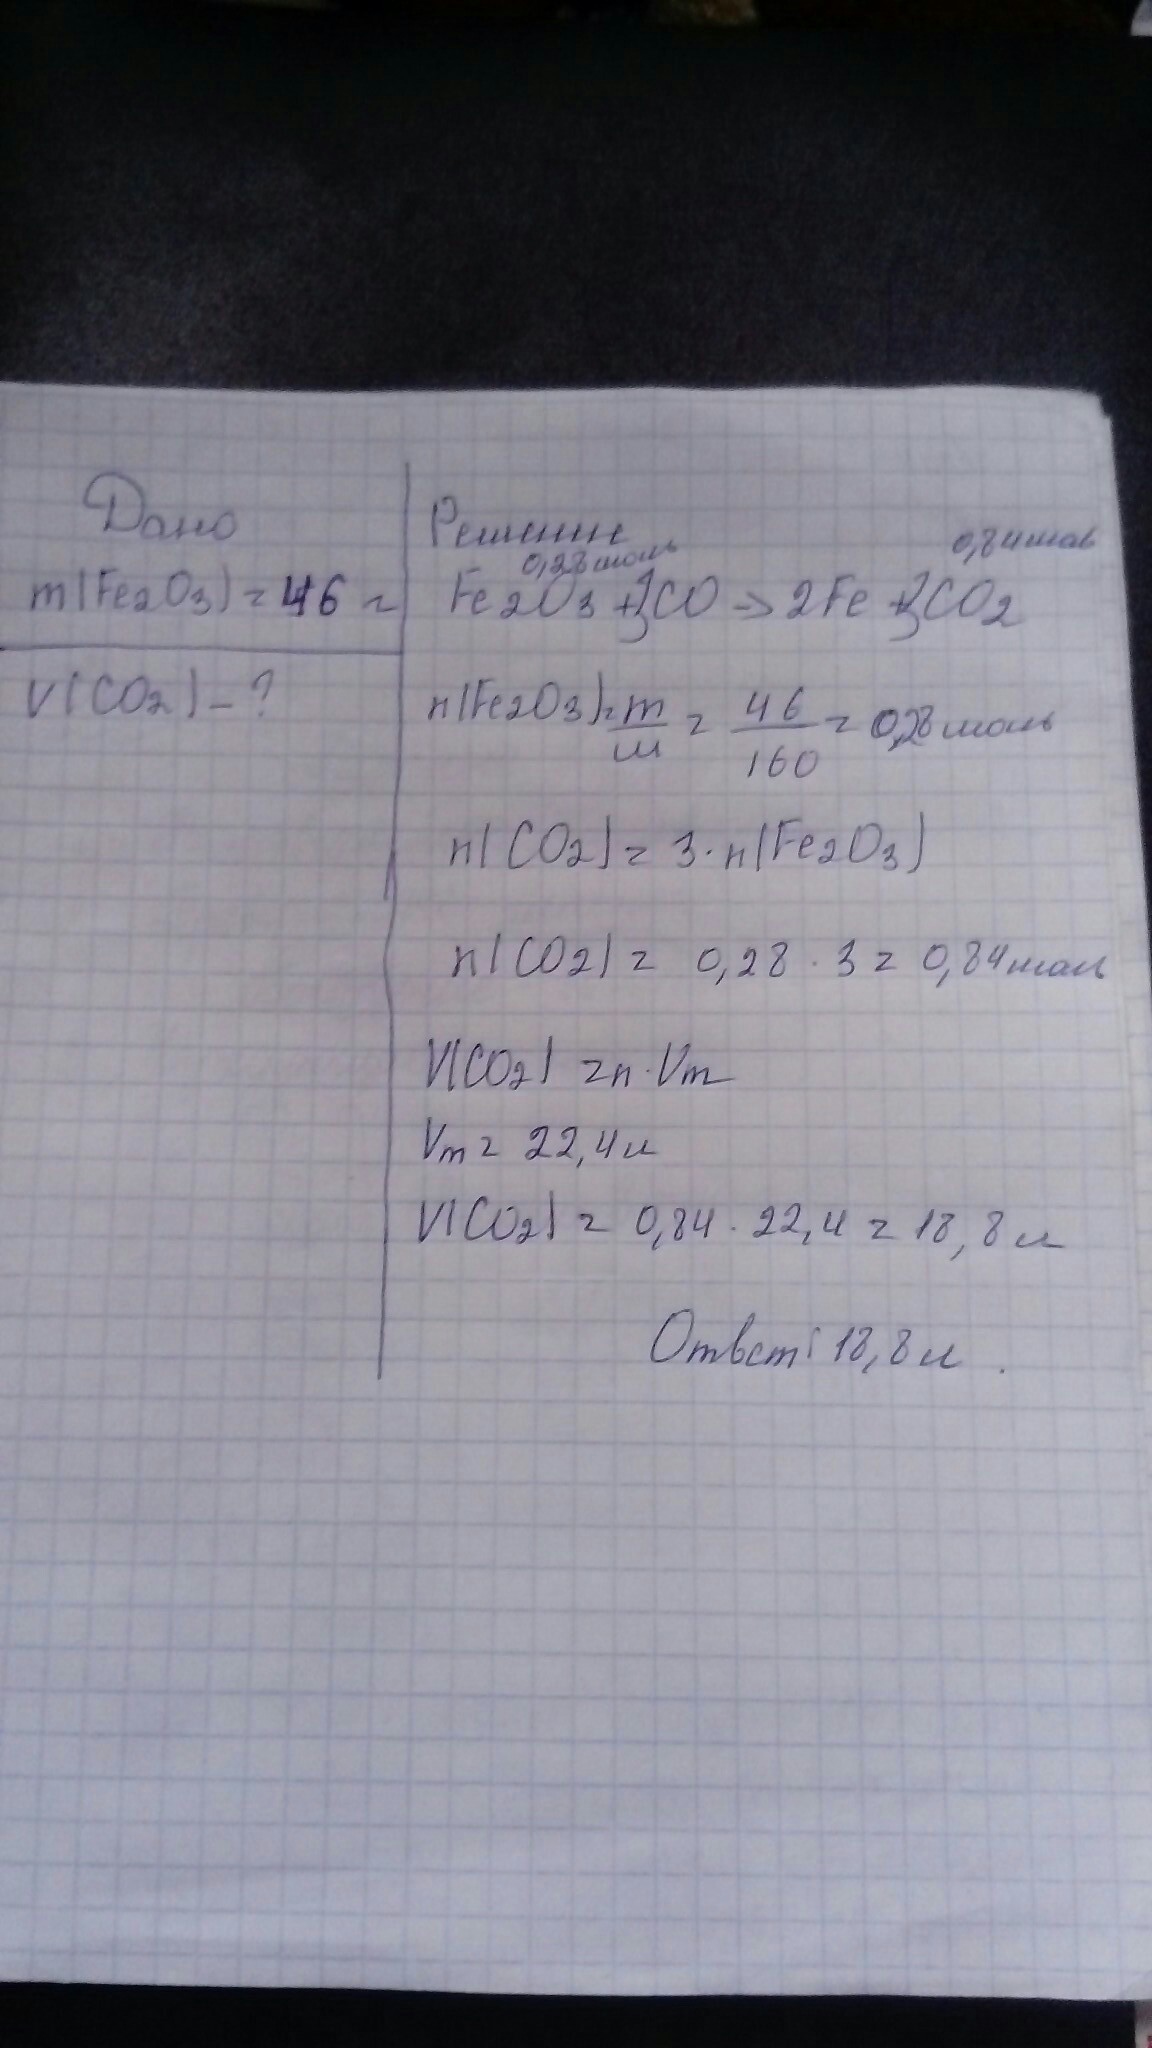 Дано
m(Fe2O3) = 46 г
V(CO2) - ?
Решение
0,28 моль 0,84 моль
Fe2O3 + 3CO → 2Fe + 3CO2
n(Fe2O3) = m/M = 46/160 = 0,28 моль
n(CO2) = 3 · n(Fe2O3)
n(CO2) = 0,28 · 3 = 0,84 моль
V(CO2) = n · Vm
Vm = 22,4 л
V(CO2) = 0,84 · 22,4 = 18,8 л
Ответ: 18,8 л.